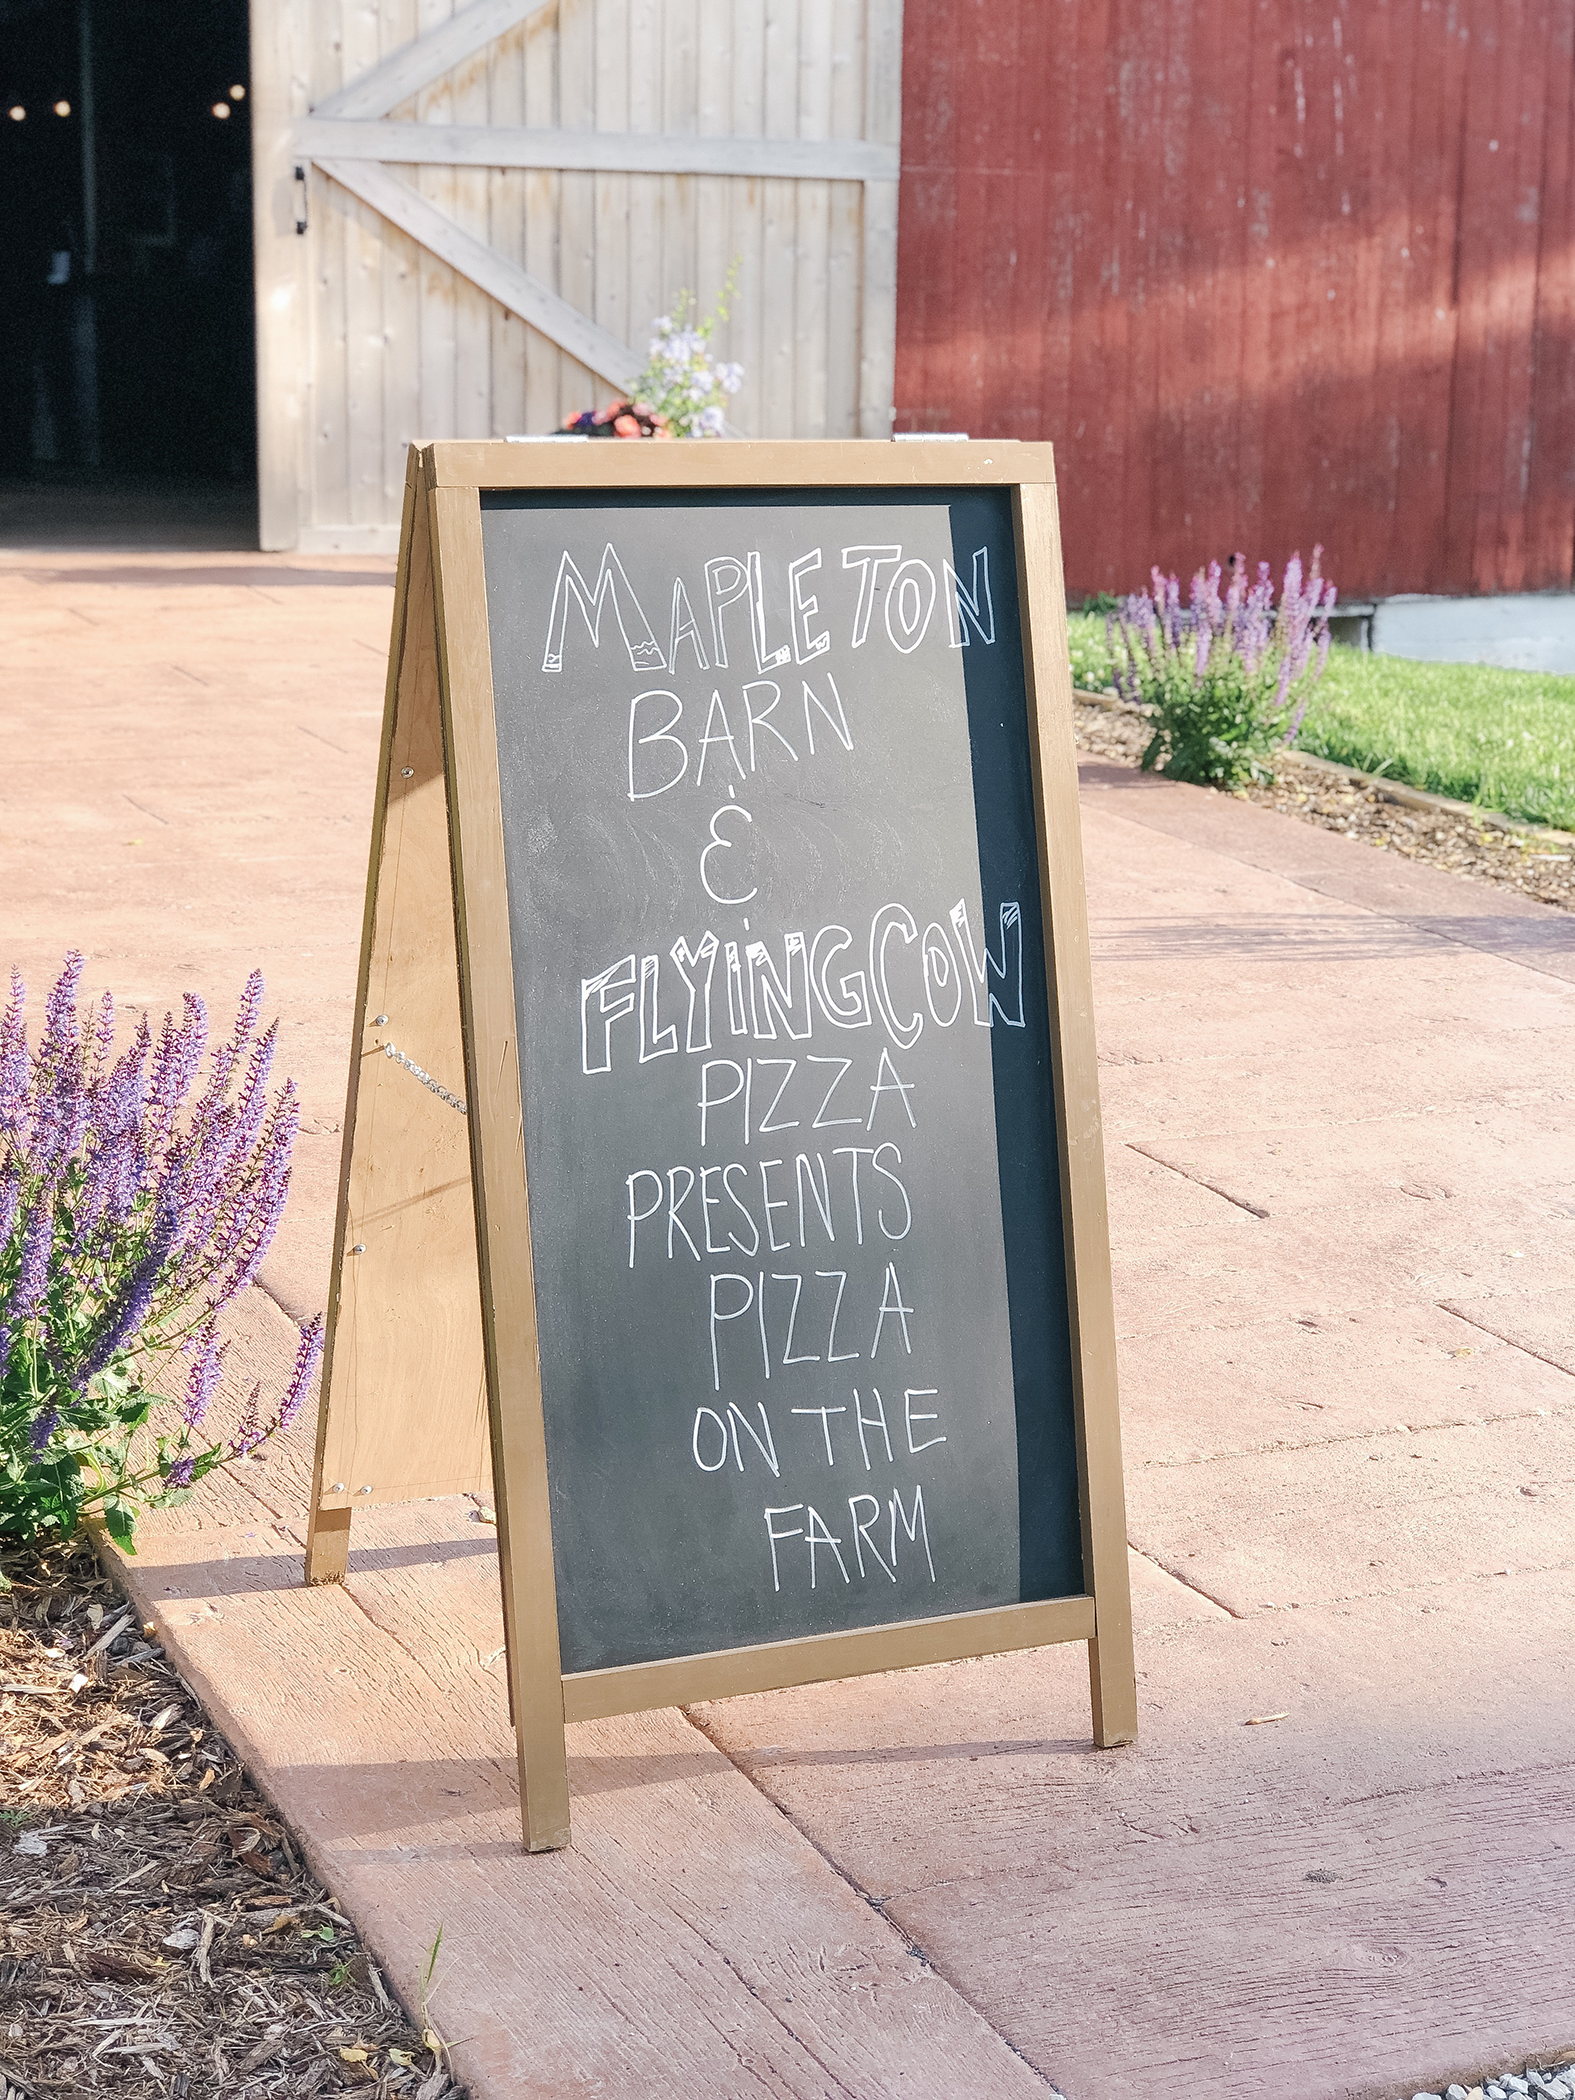 MAPLETON
BARN
&
FLYING COW
PIZZA
PRESENTS
PIZZA
ON THE
FARM